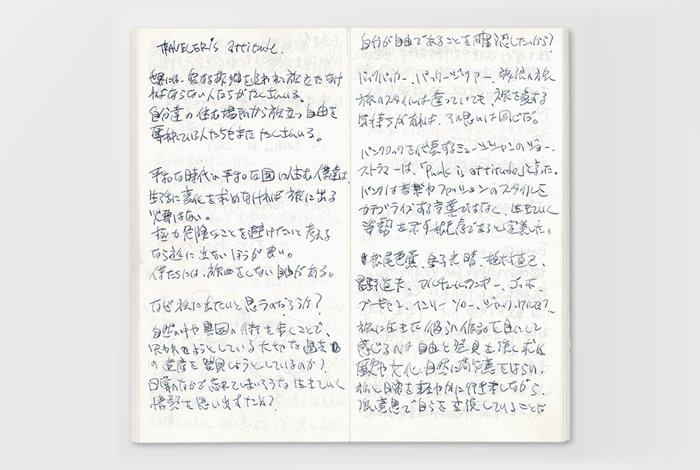 TRAVELER'S attitude.
世界には、愛する故郷を追われ旅立たなけ
ればならない人たちがたくさんいる。
自分達の住む場所から旅立つ自由を
奪われている人たちもまたたくさんいる。
平和な時代の平和な国に住む僕達は、
生活に変化を求めなければ旅に出る
必要はない。
極力危険なことを避けたいと考える
なら旅に出ないほうが良い。
僕たちには、旅をしない自由がある。
なぜ旅に出たいと思うのだろうか?
自然の中や異国の街を歩くことで、
失われようとしている大切な過去
の遺産を発見しようとしているのか?
日常のなかで忘れてしまいそうな生きていく
情熱を思い出すため?
自分が自由であることを確認したいから?
バックパッカー、パッケージツアー、旅
旅のスタイルは違っていても、旅を愛する
気持ちがあれば、その思いは同じだ。
パンクロックを代表するミュージシャンのジョー・
ストラマーは、「Punk is attitude」と言った。
パンクは音楽やファッションのスタイルを
カテゴライズする言葉ではなく、生きていく
姿勢を示す概念であると定義した。
松尾芭蕉、金子光晴、植村直己、
星野道夫、アルチュール・ランボー、ゴッホ、
ゴーギャン、ヘンリー・ソロー、ジャック・ケルアック。
旅に生きた彼らの作品を目にして
感じるのは自由と発見を強く求め
歴史や文化、自然に敬意をはらい、
旅と日常を軽やかに行き来しながら、
強い意思で自らを表現していることだ